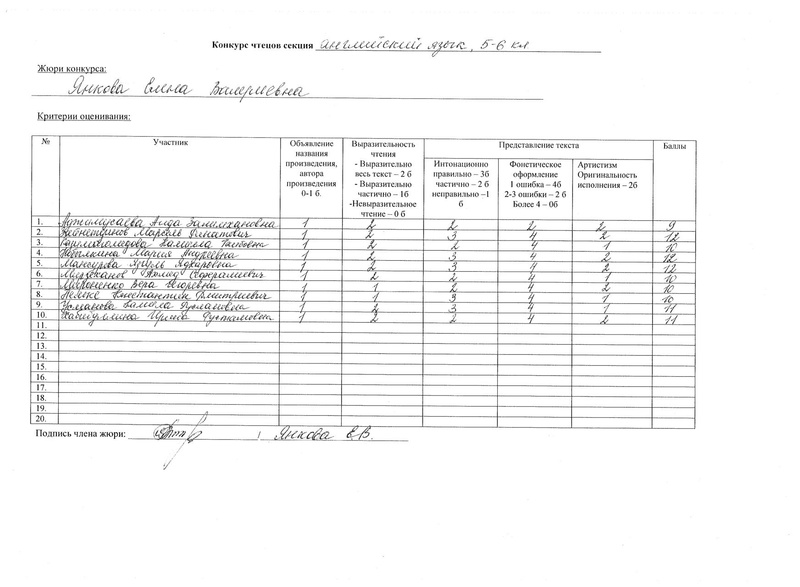 Конкурс чтецов секция английский язык, 5-6 кл
Жюри конкурса:
Янкова Елена Валериевна
Критерии оценивания:
№ Участник Объявление названия произведения, автора произведения 0-1 б. Выразительность чтения - Выразительно весь текст – 2 б - Выразительно частично – 1б -Невыразительное чтение – 0 б Представление текста Баллы
Интонационно правильно – 3б частично – 2 б неправильно –1 б Фонетическое оформление 1 ошибка – 4б 2-3 ошибки – 2 б Более 4 – 0б Артистизм Оригинальность исполнения – 2б
1. Аида 1 2 2 2 2 9
2. Марсель 1 2 3 4 2 12
3. 1 2 2 4 1 10
4. Мария Андреевна 1 2 3 4 2 12
5. Мансурова 1 2 3 4 2 12
6. 1 2 2 4 1 10
7. Мироненко Вера Игоревна 1 1 2 4 2 10
8. Константин Дмитриевич 1 1 3 4 1 10
9. Усманова Камила Руслановна 1 2 3 4 1 11
10. Ирина Рустамовна 1 2 2 4 2 11
11.
12.
13.
14.
15.
16.
17.
18.
19.
20.
Подпись члена жюри: / Янкова Е.В.